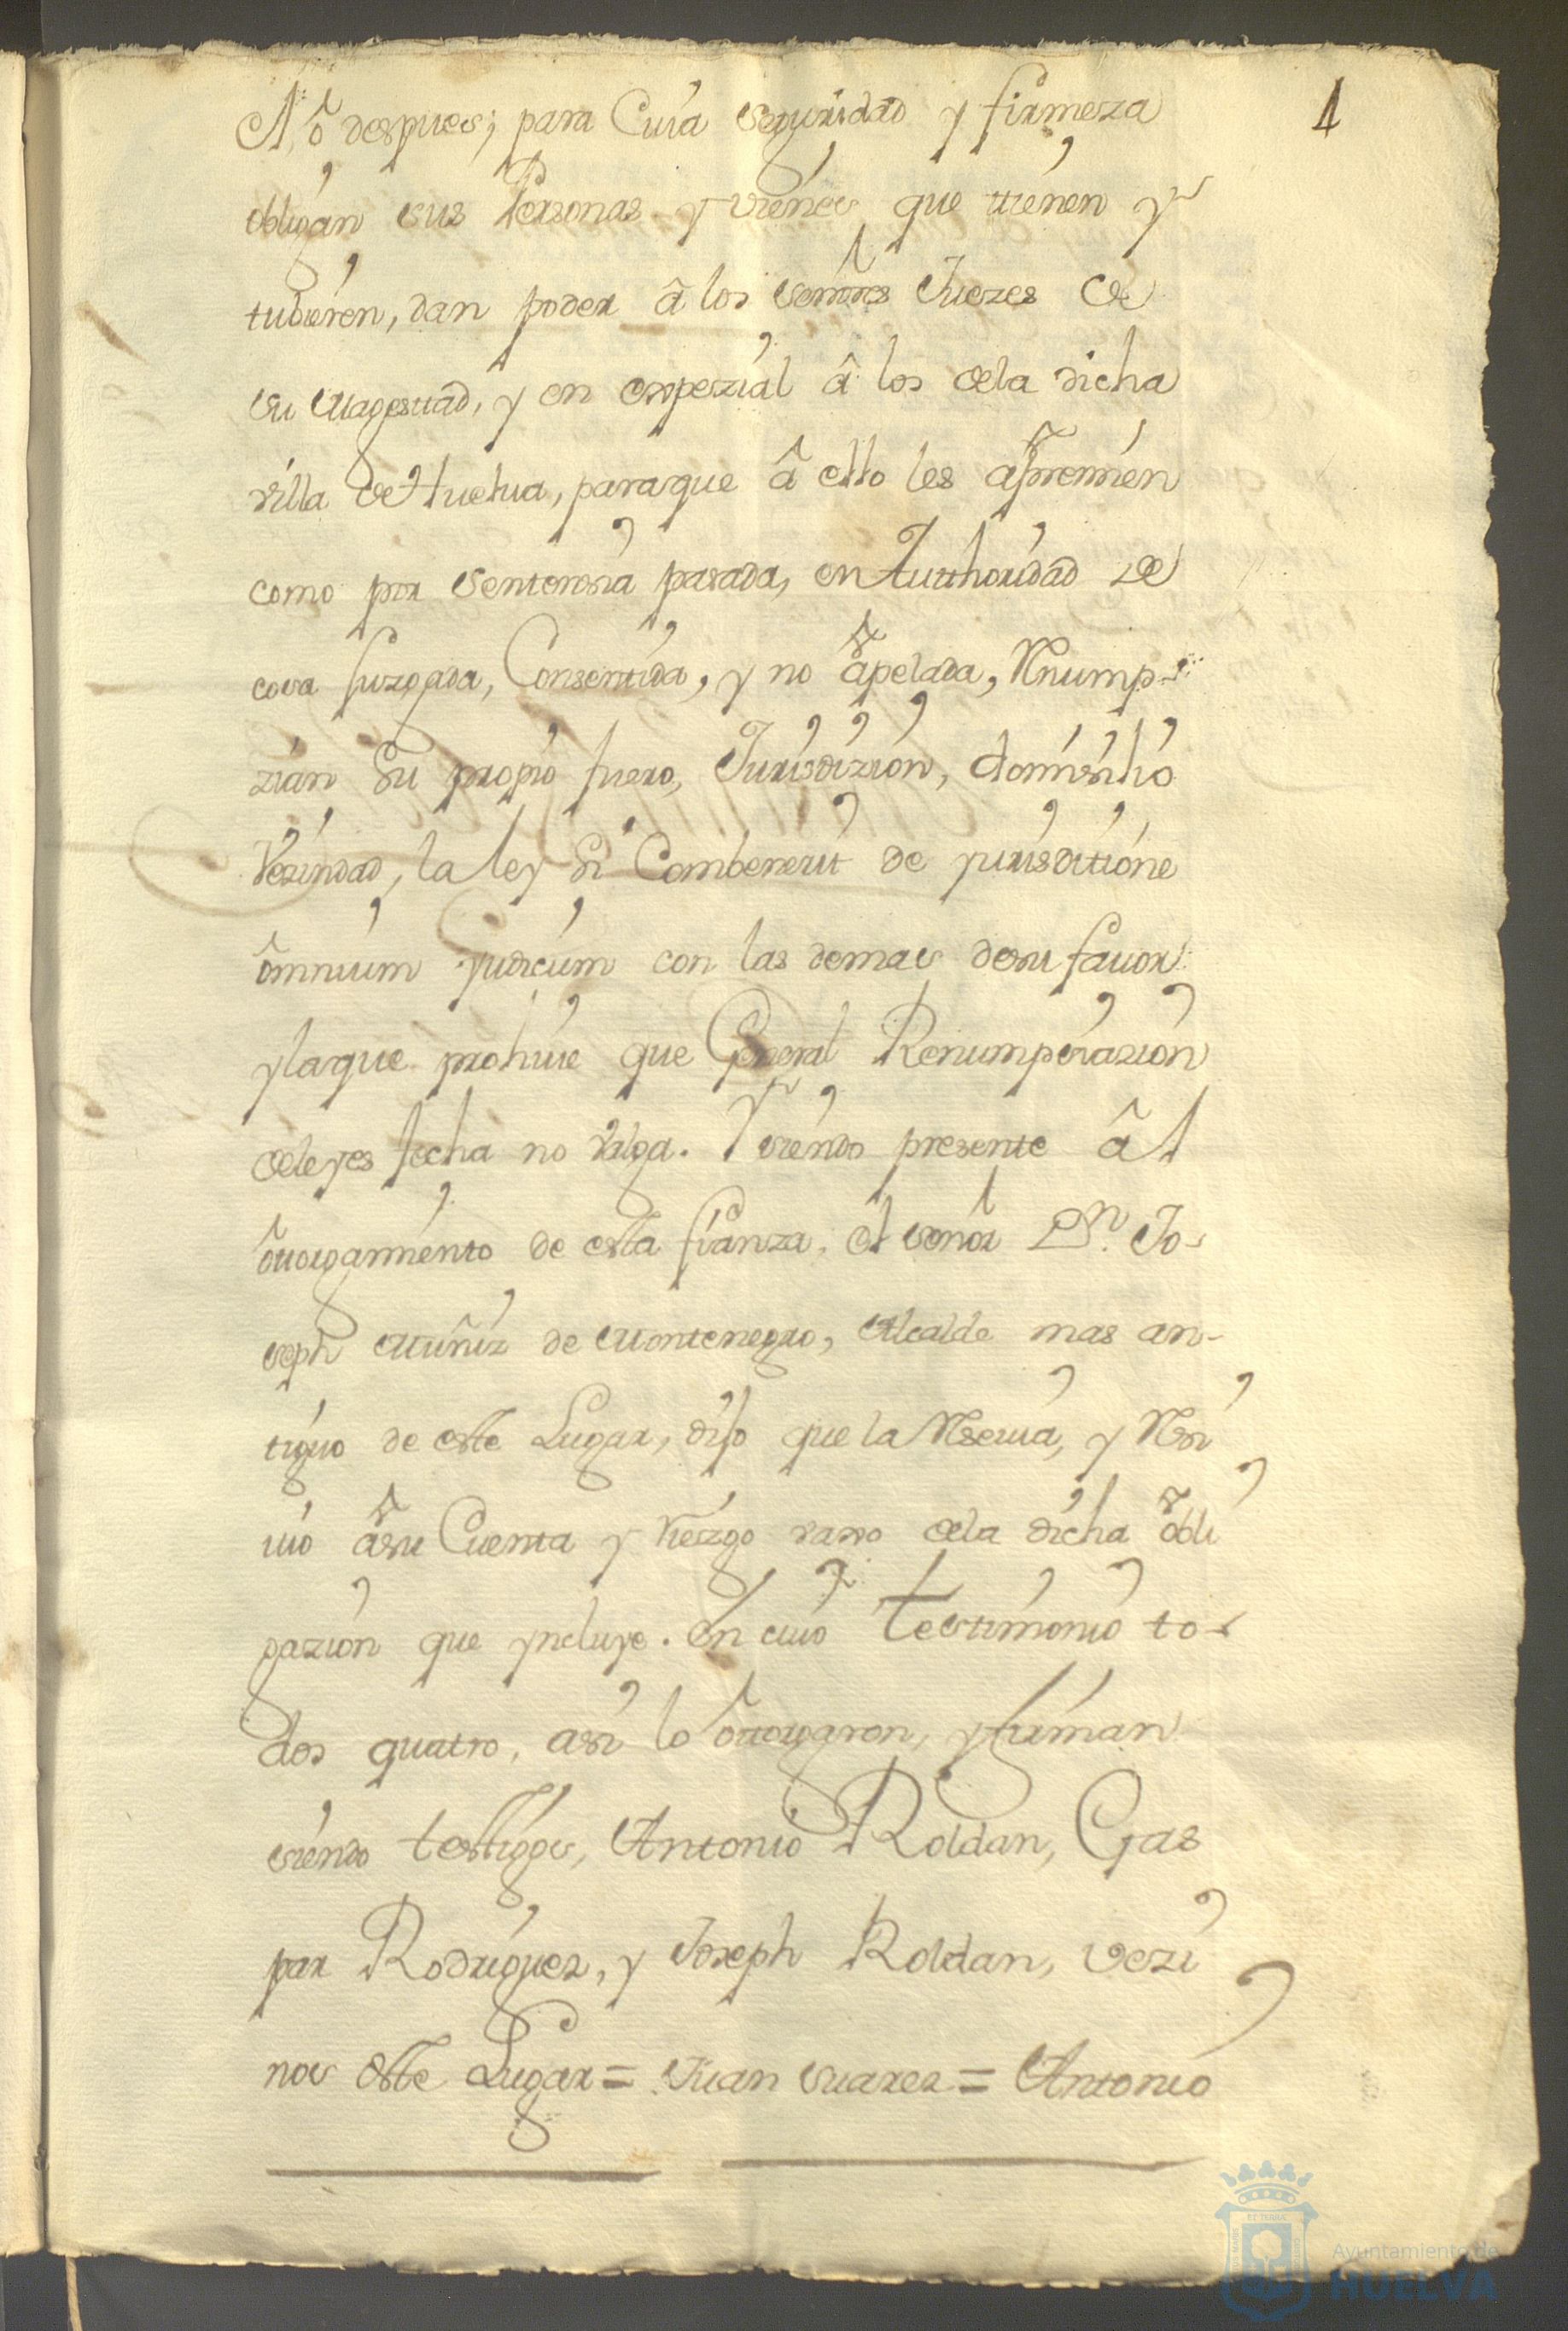 1
ô despues; para Cuia seguridad y firmeza
obligan sus Personas y vienes que tienen y
tubieren, dan poder â los señores Juezes de
su Magestad, y en espezial â los dela dicha
villa de Huelua, paraque â ello les apremien
como por sentenzia pasada, en Autthoridad de
cosa Juzgada, Consentida, y no apelada, Rnump-
zian Su propio fuero, Jurisdizion, domisilio
Vezindad, la ley Si Combenerit de jurisditione
ômnium judicum con las demas desu fauor
ylaque prohiue que General Renumpsiazion
deleyes fecha no valga. Y siendo presente âl
ôtorgamiento de esta fianza, el señor Dn. Jo-
seph Muñiz de Montenegro, Alcalde mas an-
tiguo de este Lugar, dijo que la Rseuia, y Rsi
uio âsu Cuenta y Riezgo vaxo dela dicha ôbli
gazion que yncluye. En cuio Testimonio to-
dos quatro, asi lo ôtorgaron, yfirman
siendo testigos, Antonio Roldan, Gas
par Rodriguez, y Joseph Roldan, vezi
nos este Lugar = Juan Suarez = Antonio
Ayuntamiento de
HUELVA